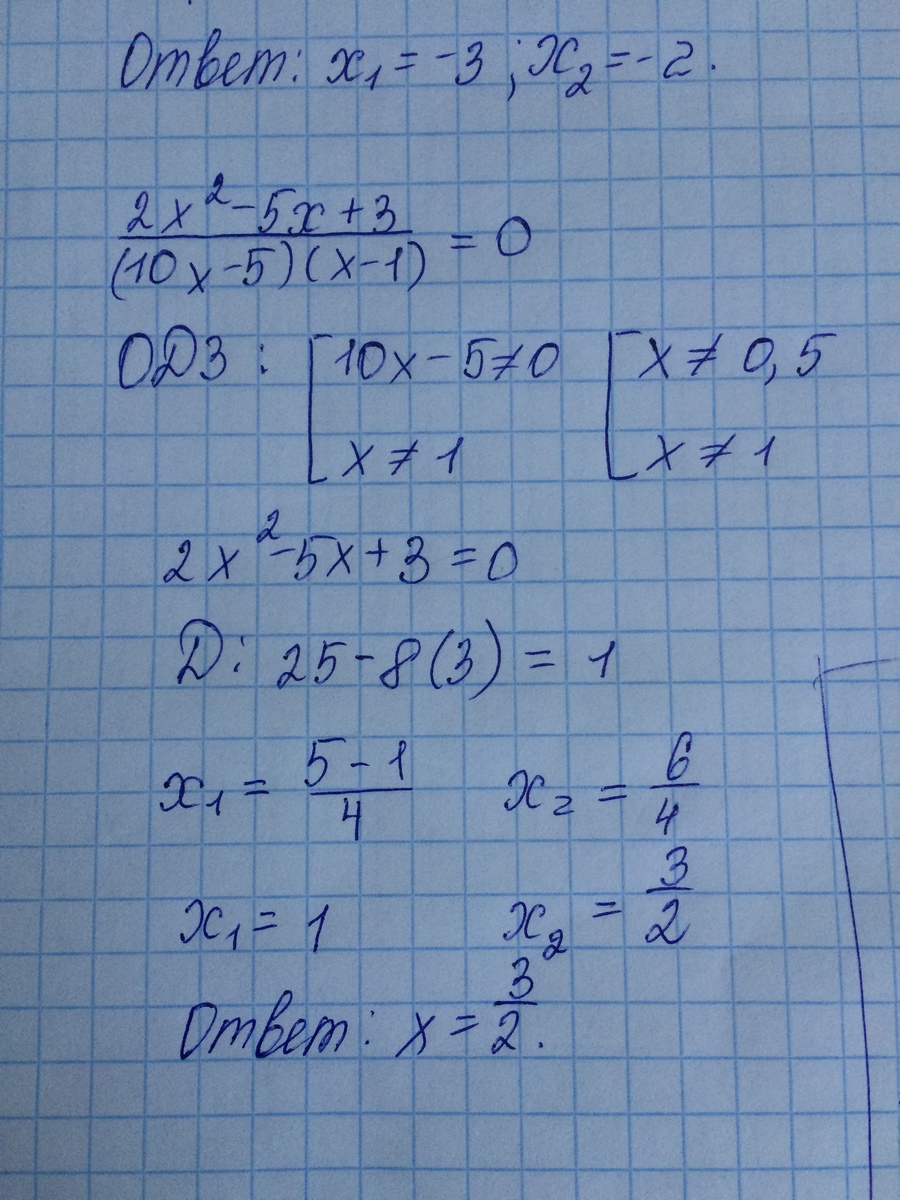 Ответ: x₁ = -3 ; x₂ = -2.
(2x² - 5x + 3)/((10x - 5)(x - 1)) = 0
ОДЗ : [10x - 5 ≠ 0 [x ≠ 0,5
x ≠ 1 x ≠ 1
2x² - 5x + 3 = 0
D: 25 - 8(3) = 1
x₁ = (5 - 1)/4 x₂ = 6/4
x₁ = 1 x₂ = 3/2
Ответ: x = 3/2.